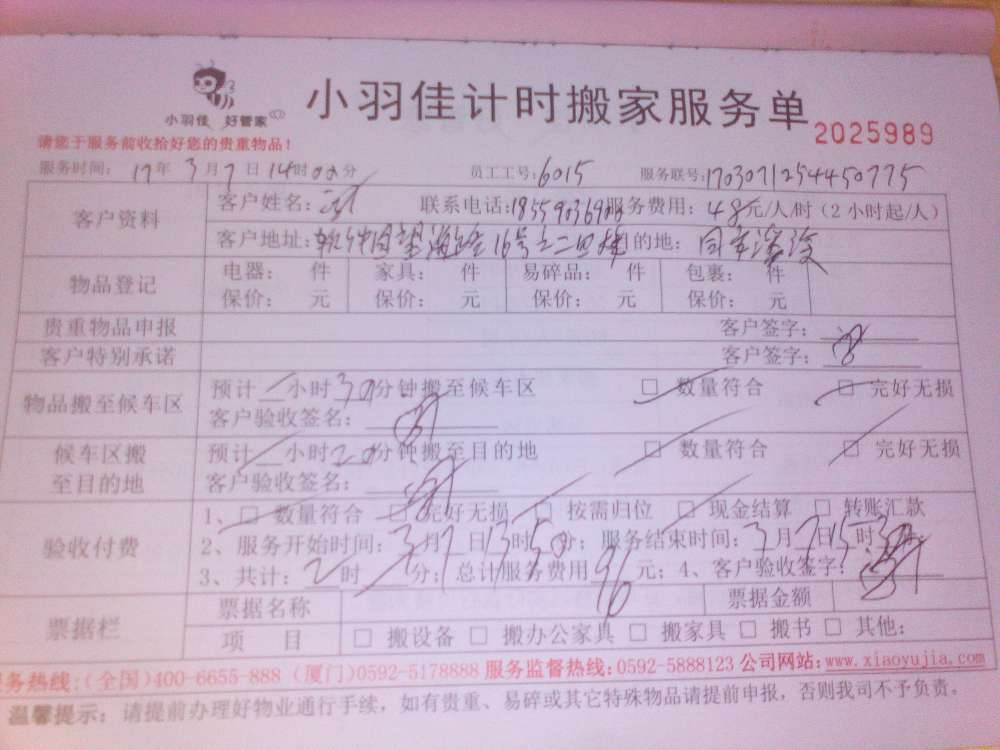 小羽佳 好管家
小羽佳计时搬家服务单
2025989
请您于服务前收拾好您的贵重物品!
服务时间: 17年 3月 7日 14时00分 员工工号:6015 服务联号:1703071254450775
客户资料
客户姓名: 联系电话: 服务费用: 48元/人/时(2小时起/人)
客户地址:软件园望海路16号之二 目的地:
物品登记
电器: 件 家具: 件 易碎品: 件 包裹: 件
保价: 元 保价: 元 保价: 元 保价: 元
贵重物品申报 客户签字:
客户特别承诺 客户签字:
物品搬至候车区
预计 小时30分钟搬至候车区 □ 数量符合 □ 完好无损
客户验收签名:
候车区搬至目的地
预计 小时20分钟搬至目的地 □ 数量符合 □ 完好无损
客户验收签名:
验收付费
1、□ 数量符合 □ 完好无损 □ 按需归位 □ 现金结算 □ 转账汇款
2、服务开始时间:3月7日13时50分;服务结束时间:3月7日15时30
3、共计:2时 分;总计服务费用96元;4、客户验收签字:
票据栏
票据名称 票据金额
项 目 □ 搬设备 □ 搬办公家具 □ 搬家具 □ 搬书 □ 其他:
务热线:(全国)400-6655-888 (厦门)0592-5178888 服务监督热线:0592-5888123 公司网站:www.xiaoyujia.com
温馨提示:请提前办理好物业通行手续,如有贵重、易碎或其它特殊物品请提前申报,否则我司不予负责。